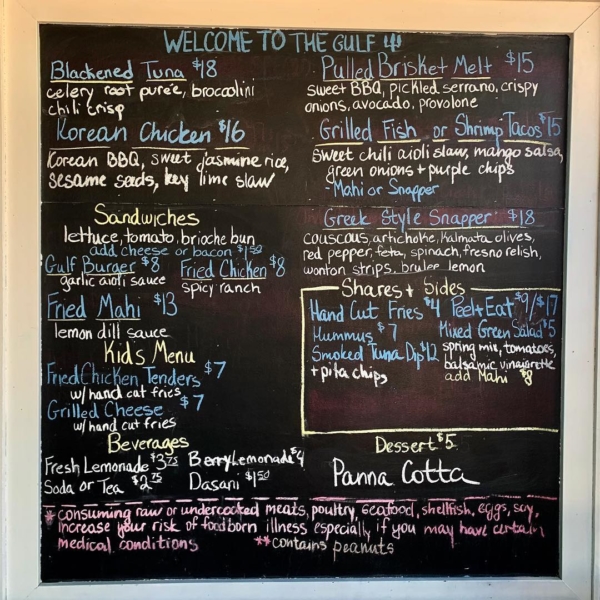 WELCOME TO THE GULF
Blackened Tuna $18
celery root purée, broccolini
chili crisp
Korean Chicken $16
Korean BBQ, sweet jasmine rice,
sesame seeds, key lime slaw
Pulled Brisket Melt $15
sweet BBQ, pickled serrano, crispy
onions, avocado, provolone
Grilled Fish or Shrimp Tacos $15
sweet chili aioli slaw, mango salsa,
green onions + purple chips
-Mahi or Snapper
Sandwiches
lettuce, tomato, brioche bun
add cheese or bacon $1.50
Gulf Burger $8 Fried Chicken $8
garlic aioli sauce spicy ranch
Fried Mahi $13
lemon dill sauce
Kid's Menu
Fried Chicken Tenders $7
w/ hand cut fries
Grilled Cheese $7
w/ hand cut fries
Beverages
Fresh Lemonade $3.75 Berry Lemonade $4
Soda or Tea $2.75 Dasani $1.50
Greek Style Snapper $18
couscous, artichoke, kalmata olives,
red pepper, feta, spinach, fresno relish,
wonton strips, brulee lemon
Shares + Sides
Hand Cut Fries $4 Peel + Eat $9/$17
Hummus $7 Mixed Green Salad $5
Smoked Tuna Dip $12 spring mix, tomatoes,
+ pita chips balsamic vinaigrette
add Mahi $8
Dessert $5
Panna Cotta
*consuming raw or undercooked meats, poultry, seafood, shellfish, eggs, soy,
increase your risk of foodborn illness especially if you may have certain
medical conditions **contains peanuts